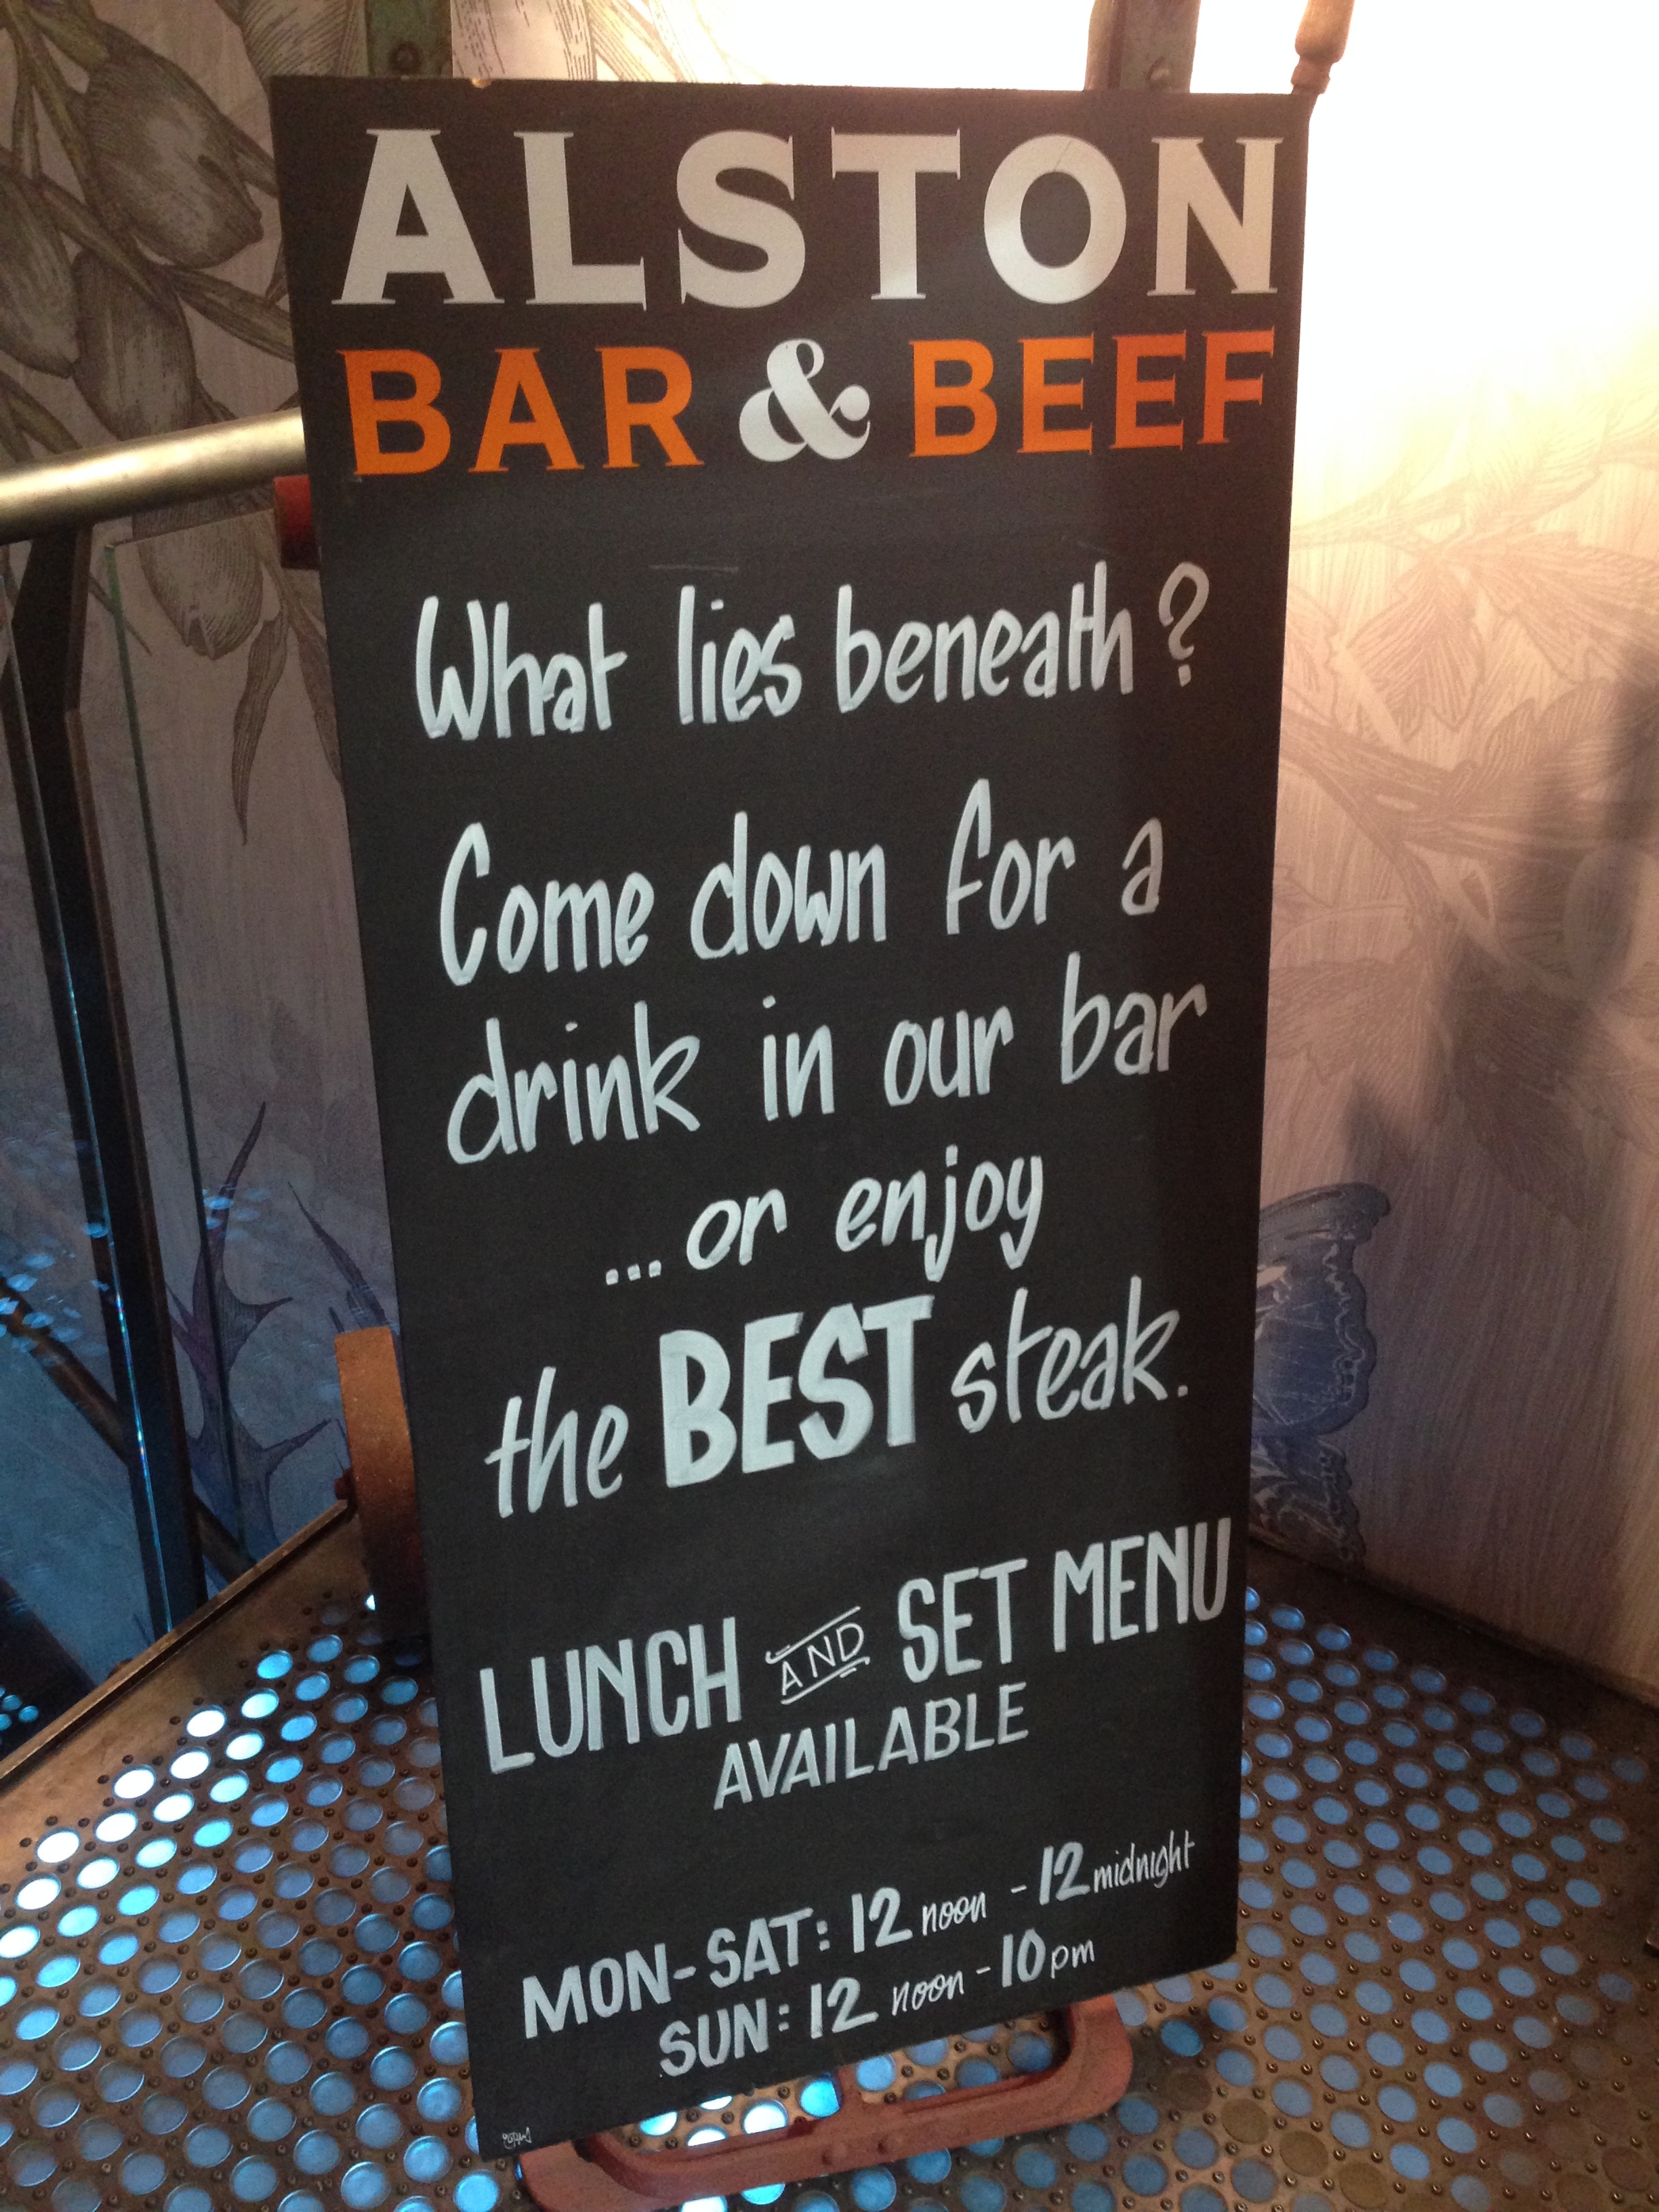 ALSTON
BAR & BEEF
What lies beneath?
Come down for a
drink in our bar
... or enjoy
the BEST steak.
LUNCH AND SET MENU
AVAILABLE
MON-SAT: 12 noon - 12 midnight
SUN: 12 noon - 10pm